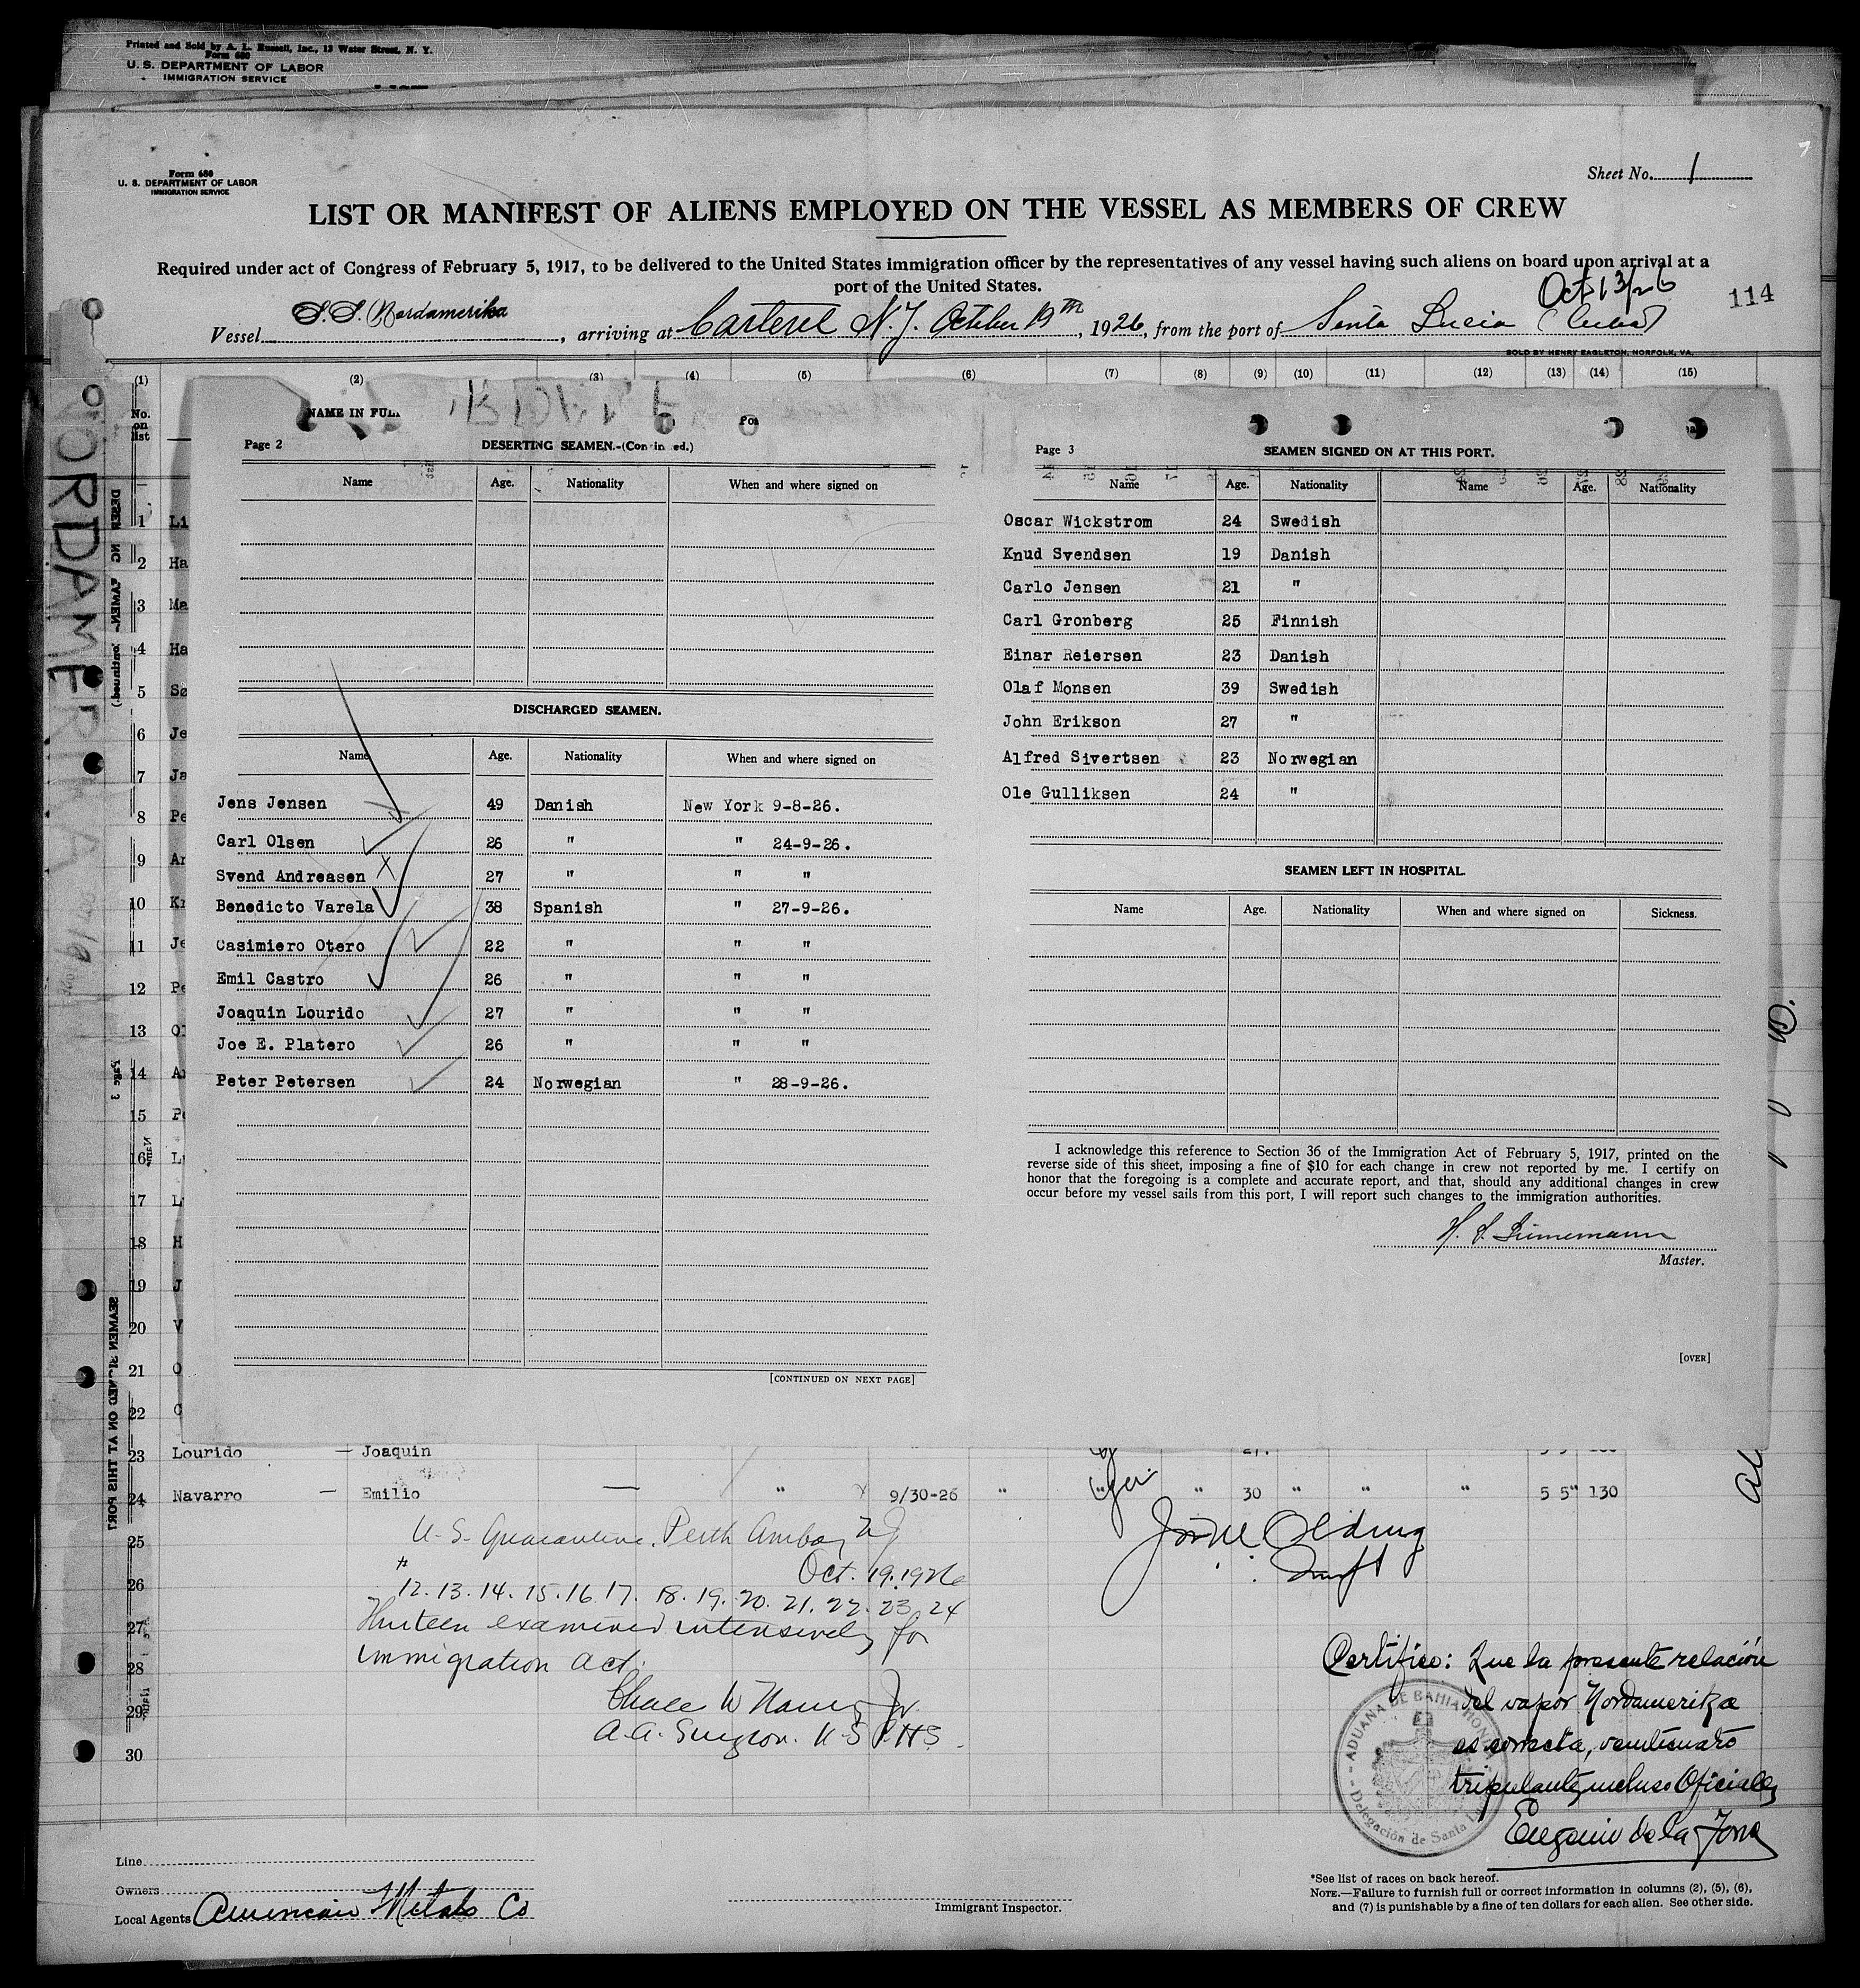 Printed and Sold by A. L. Russell, Inc., 13 Water Street, N. Y.
Form 680
U. S. DEPARTMENT OF LABOR
IMMIGRATION SERVICE
Form 680
U. S. DEPARTMENT OF LABOR
IMMIGRATION SERVICE
Sheet No. 1
LIST OR MANIFEST OF ALIENS EMPLOYED ON THE VESSEL AS MEMBERS OF CREW
Required under act of Congress of February 5, 1917, to be delivered to the United States immigration officer by the representatives of any vessel having such aliens on board upon arrival at a
port of the United States.
Oct 13/26
114
Vessel S.S. Nordamerika, arriving at Carteret N.J. October 19th, 1926, from the port of Santa Lucia (Cuba)
SOLD BY HENRY EAGLETON, NORFOLK, VA.
(1) (2) (3) (4) (5) (6) (7) (8) (9) (10) (11) (12) (13) (14) (15)
No. on list
NAME IN FULL
NORDAMERIKA
Page 2
DESERTING SEAMEN.-(Continued.)
Name Age. Nationality When and where signed on
DISCHARGED SEAMEN.
Name Age. Nationality When and where signed on
Jens Jensen 49 Danish New York 9-8-26.
Carl Olsen 26 " " 24-9-26.
Svend Andreasen 27 " " "
Benedicto Varela 38 Spanish " 27-9-26.
Casimiero Otero 22 " " "
Emil Castro 26 " " "
Joaquin Lourido 27 " " "
Joe E. Platero 26 " " "
Peter Petersen 24 Norwegian " 28-9-26.
[CONTINUED ON NEXT PAGE]
Page 3
SEAMEN SIGNED ON AT THIS PORT.
Name Age. Nationality Name Age. Nationality
Oscar Wickstrom 24 Swedish
Knud Svendsen 19 Danish
Carlo Jensen 21 "
Carl Gronberg 25 Finnish
Einar Reiersen 23 Danish
Olaf Monsen 39 Swedish
John Erikson 27 "
Alfred Sivertsen 23 Norwegian
Ole Gulliksen 24 "
SEAMEN LEFT IN HOSPITAL.
Name Age. Nationality When and where signed on Sickness.
I acknowledge this reference to Section 36 of the Immigration Act of February 5, 1917, printed on the
reverse side of this sheet, imposing a fine of $10 for each change in crew not reported by me. I certify on
honor that the foregoing is a complete and accurate report, and that, should any additional changes in crew
occur before my vessel sails from this port, I will report such changes to the immigration authorities.
Master.
[OVER]
1 Li
2 Ha
3 Ma
4 Ha
5 Sø
6 Je
7 Ja
8 Pe
9 An
10 Kr
11 Je
12 Pe
13 Ol
14
15
16
17
18 H
19 J
20 V
21 O
22 C
23 Lourido — Joaquin
24 Navarro — Emilio — " 9/30-26 " " 30 " " " 5 5" 130
25
26
27
28
29
30
U-S. Quarantine. Perth Amboy NJ
Oct. 19.1926
# 12. 13. 14. 15. 16. 17. 18. 19. 20. 21. 22. 23. 24
Thirteen examined intensively for
immigration act.
A.A. Surgeon. U.S.P.H.S.
Certifico: Que la presente relación
del vapor Nordamerika
es correcta, veinticuatro
tripulantes incluso Oficiales
ADUANA DE BAHIA HONDA
Delegación de Santa
Line
Owners
Local Agents American Metals Co
Immigrant Inspector.
*See list of races on back hereof.
NOTE.—Failure to furnish full or correct information in columns (2), (5), (6),
and (7) is punishable by a fine of ten dollars for each alien. See other side.